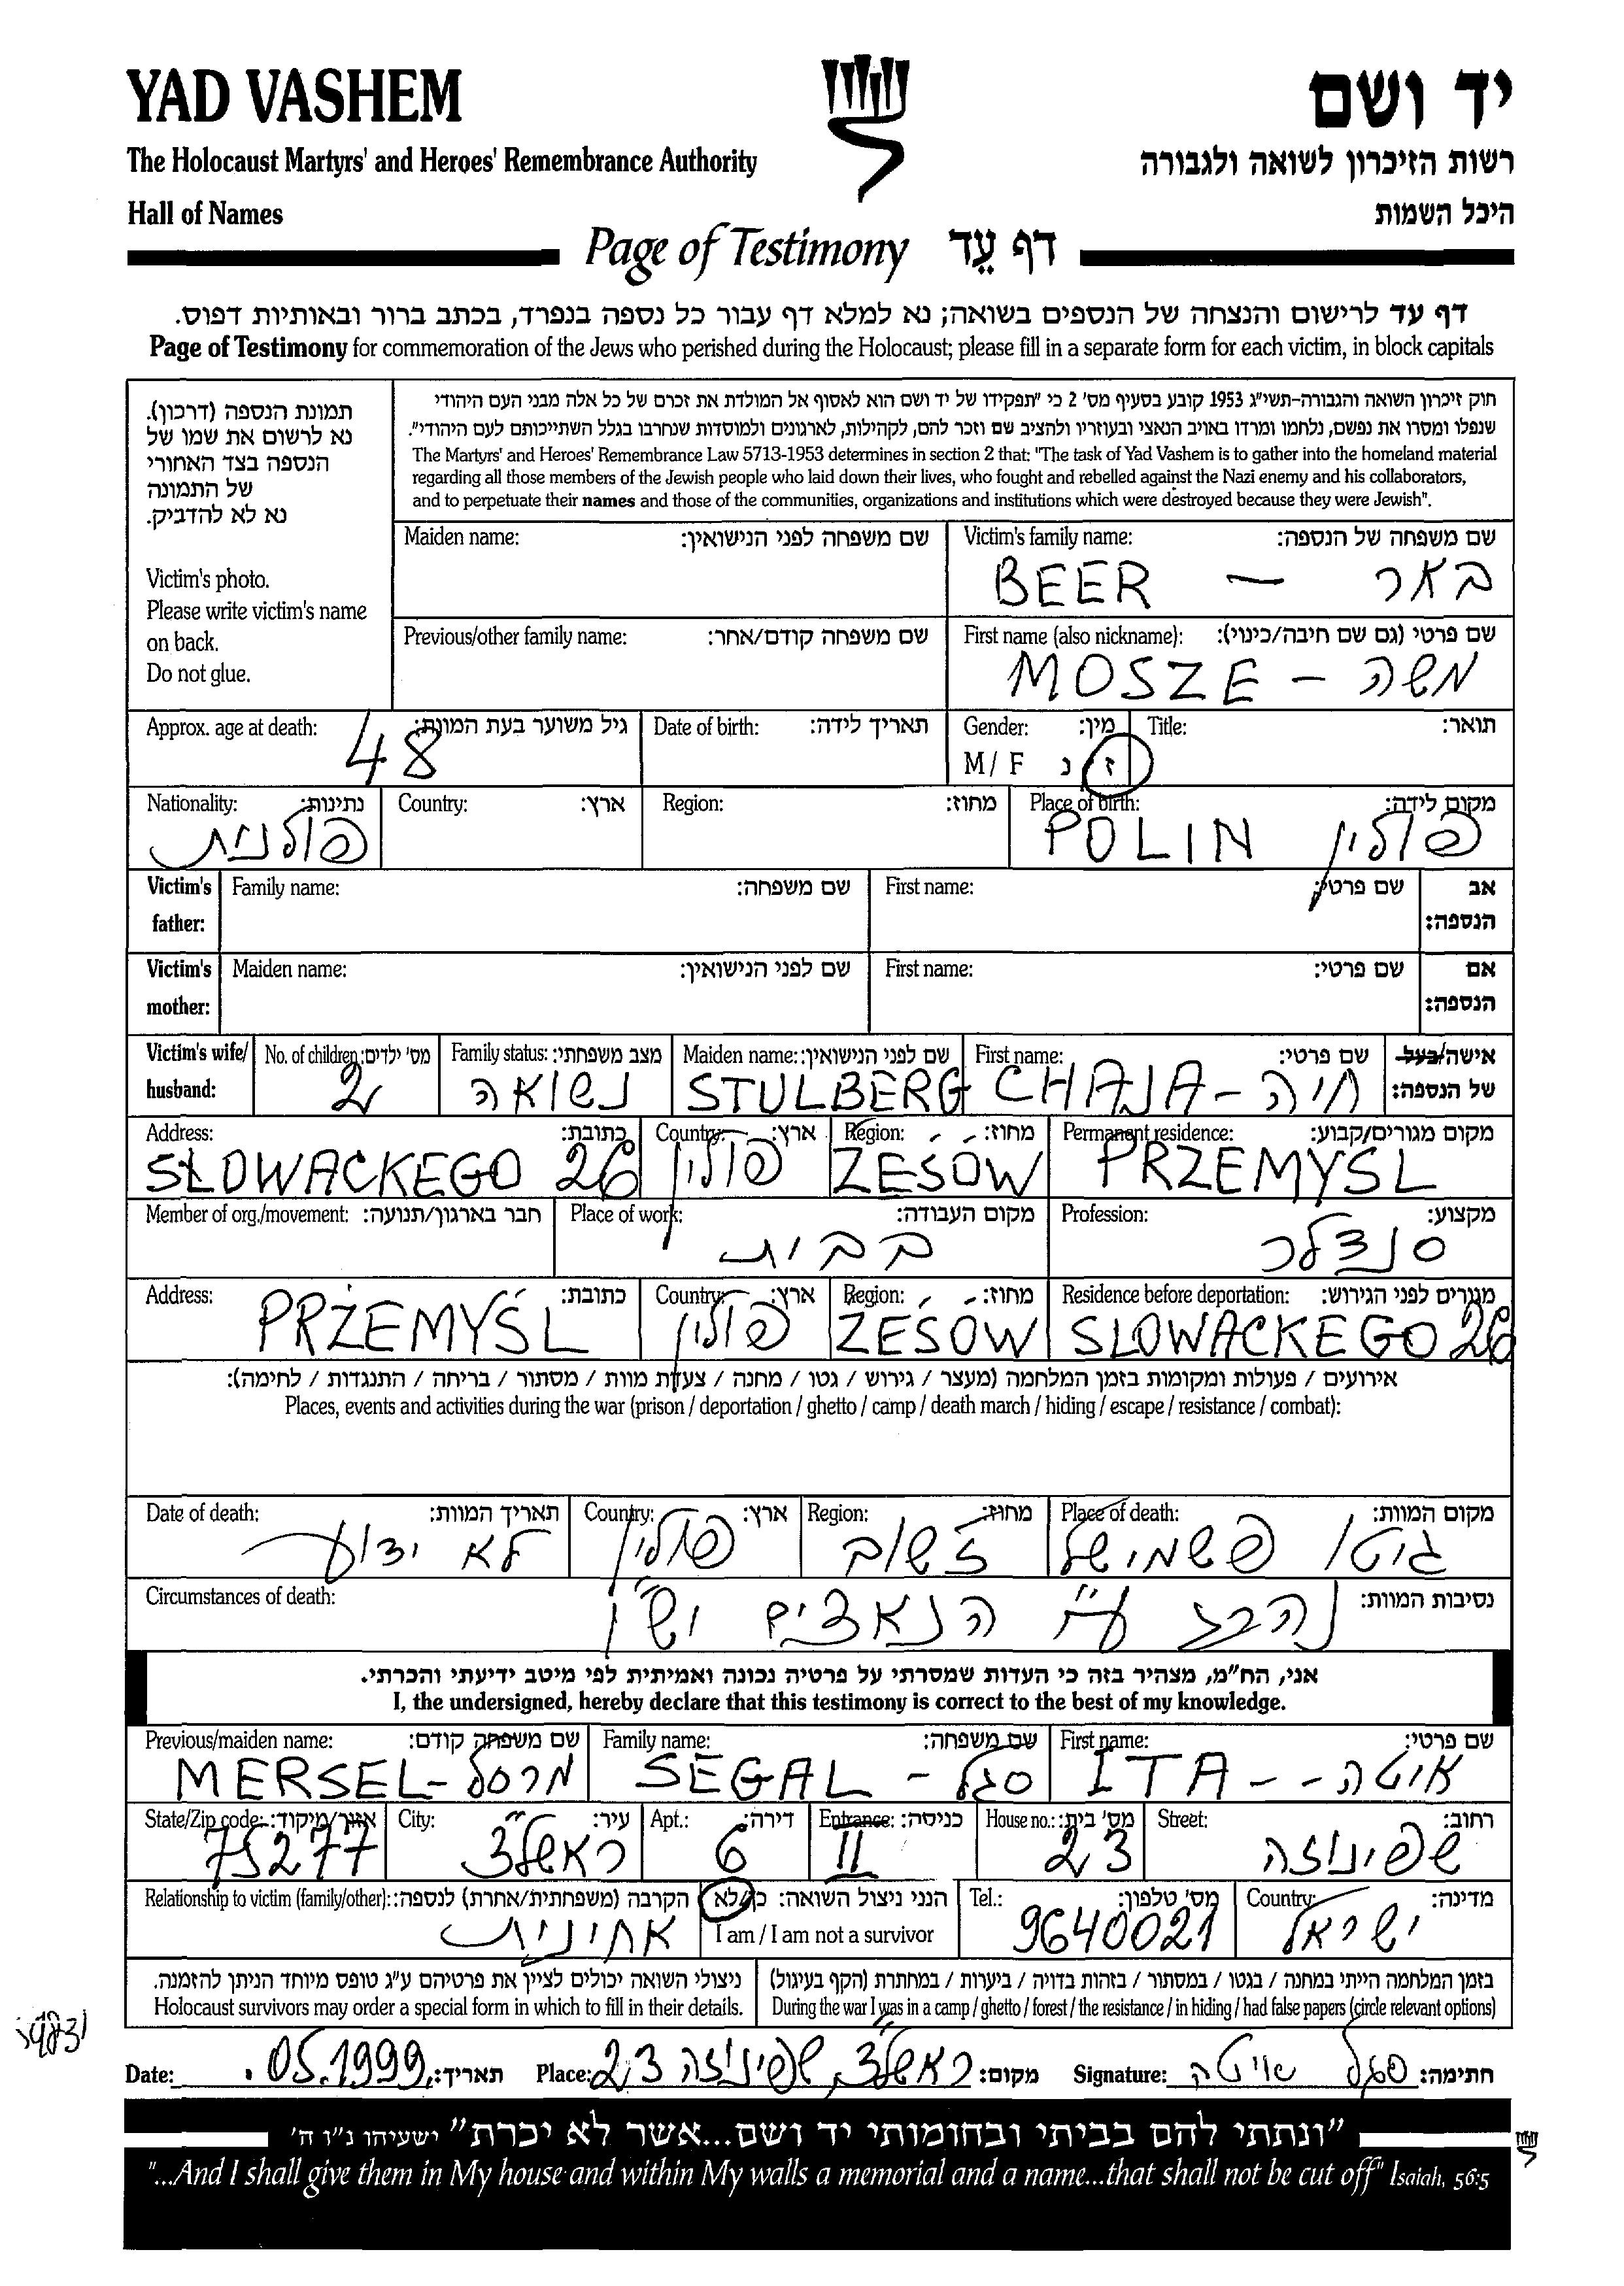 YAD VASHEM יד ושם
The Holocaust Martyrs' and Heroes' Remembrance Authority רשות הזיכרון לשואה ולגבורה
Hall of Names היכל השמות
Page of Testimony דף עֵד
דף עד לרישום והנצחה של הנספים בשואה; נא למלא דף עבור כל נספה בנפרד, בכתב ברור ובאותיות דפוס.
Page of Testimony for commemoration of the Jews who perished during the Holocaust; please fill in a separate form for each victim, in block capitals
תמונת הנספה (דרכון).
נא לרשום את שמו של
הנספה בצד האחורי
של התמונה
נא לא להדביק.
Victim's photo.
Please write victim's name
on back.
Do not glue.
חוק זיכרון השואה והגבורה-תשי"ג 1953 קובע בסעיף מס' 2 כי "תפקידו של יד ושם הוא לאסוף אל המולדת את זכרם של כל אלה מבני העם היהודי
שנפלו ומסרו את נפשם, נלחמו ומרדו באויב הנאצי ובעוזריו ולהציב שם וזכר להם, לקהילות, לארגונים ולמוסדות שנחרבו בגלל השתייכותם לעם היהודי".
The Martyrs' and Heroes' Remembrance Law 5713-1953 determines in section 2 that: "The task of Yad Vashem is to gather into the homeland material
regarding all those members of the Jewish people who laid down their lives, who fought and rebelled against the Nazi enemy and his collaborators,
and to perpetuate their names and those of the communities, organizations and institutions which were destroyed because they were Jewish".
Maiden name: שם משפחה לפני הנישואין: Victim's family name: שם משפחה של הנספה:
BEER – באר
Previous/other family name: שם משפחה קודם/אחר: First name (also nickname): שם פרטי (גם שם חיבה/כינוי):
MOSZE – משה
Approx. age at death: גיל משוער בעת המוות: Date of birth: תאריך לידה: Gender: מין: Title: תואר:
48 M / F ז נ
Nationality: נתינות: Country: ארץ: Region: מחוז: Place of birth: מקום לידה:
פולנית POLIN פולין
Victim's father: Family name: שם משפחה: First name: שם פרטי: אב הנספה:
Victim's mother: Maiden name: שם לפני הנישואין: First name: שם פרטי: אם הנספה:
Victim's wife/ husband: No. of children: מס' ילדים: Family status: מצב משפחתי: Maiden name: שם לפני הנישואין: First name: שם פרטי: אישה/בעל של הנספה:
2 נשואה STULBERG CHAJA – חיה
Address: כתובת: Country: ארץ: Region: מחוז: Permanent residence: מקום מגורים/קבוע:
SŁOWACKEGO 26 פולין ZESÓW PRZEMYSL
Member of org./movement: חבר בארגון/תנועה: Place of work: מקום העבודה: Profession: מקצוע:
בבית סנדלר
Address: כתובת: Country: ארץ: Region: מחוז: Residence before deportation: מגורים לפני הגירוש:
PRZEMYŚL פולין ZEŚÓW SLOWACKEGO 26
אירועים / פעולות ומקומות בזמן המלחמה (מעצר / גירוש / גטו / מחנה / צעדת מוות / מסתור / בריחה / התנגדות / לחימה):
Places, events and activities during the war (prison / deportation / ghetto / camp / death march / hiding / escape / resistance / combat):
Date of death: תאריך המוות: Country: ארץ: Region: מחוז: Place of death: מקום המוות:
לא ידוע פולין ז'שוב גיטו פשמישל
Circumstances of death: נסיבות המוות:
נהרג ע"י הנאצים יש"ו
אני, הח"מ, מצהיר בזה כי העדות שמסרתי על פרטיה נכונה ואמיתית לפי מיטב ידיעתי והכרתי.
I, the undersigned, hereby declare that this testimony is correct to the best of my knowledge.
Previous/maiden name: שם משפחה קודם: Family name: שם משפחה: First name: שם פרטי:
MERSEL – מרסל SEGAL – סגל ITA – – איטה
State/Zip code: אזור/מיקוד: City: עיר: Apt.: דירה: Entrance: כניסה: House no.: מס' בית: Street: רחוב:
75277 ראשל"צ 6 II 23 שפינוזה
Relationship to victim (family/other): הקרבה (משפחתית/אחרת) לנספה: הנני ניצול השואה: כן/לא Tel.: מס' טלפון: Country: מדינה:
אחינית I am / I am not a survivor 9640021 ישראל
ניצולי השואה יכולים לציין את פרטיהם ע"ג טופס מיוחד הניתן להזמנה. בזמן המלחמה הייתי במחנה / בגטו / במסתור / בזהות בדויה / ביערות / במחתרת (הקף בעיגול)
Holocaust survivors may order a special form in which to fill in their details. During the war I was in a camp / ghetto / forest / the resistance / in hiding / had false papers (circle relevant options)
Date: .05.1999 תאריך: Place: ראשל"צ שפינוזה 23 מקום: Signature: סגל איטה חתימה:
"ונתתי להם בביתי ובחומותי יד ושם...אשר לא יכרת" ישעיהו נ"ו ה'
"...And I shall give them in My house and within My walls a memorial and a name...that shall not be cut off" Isaiah, 56:5